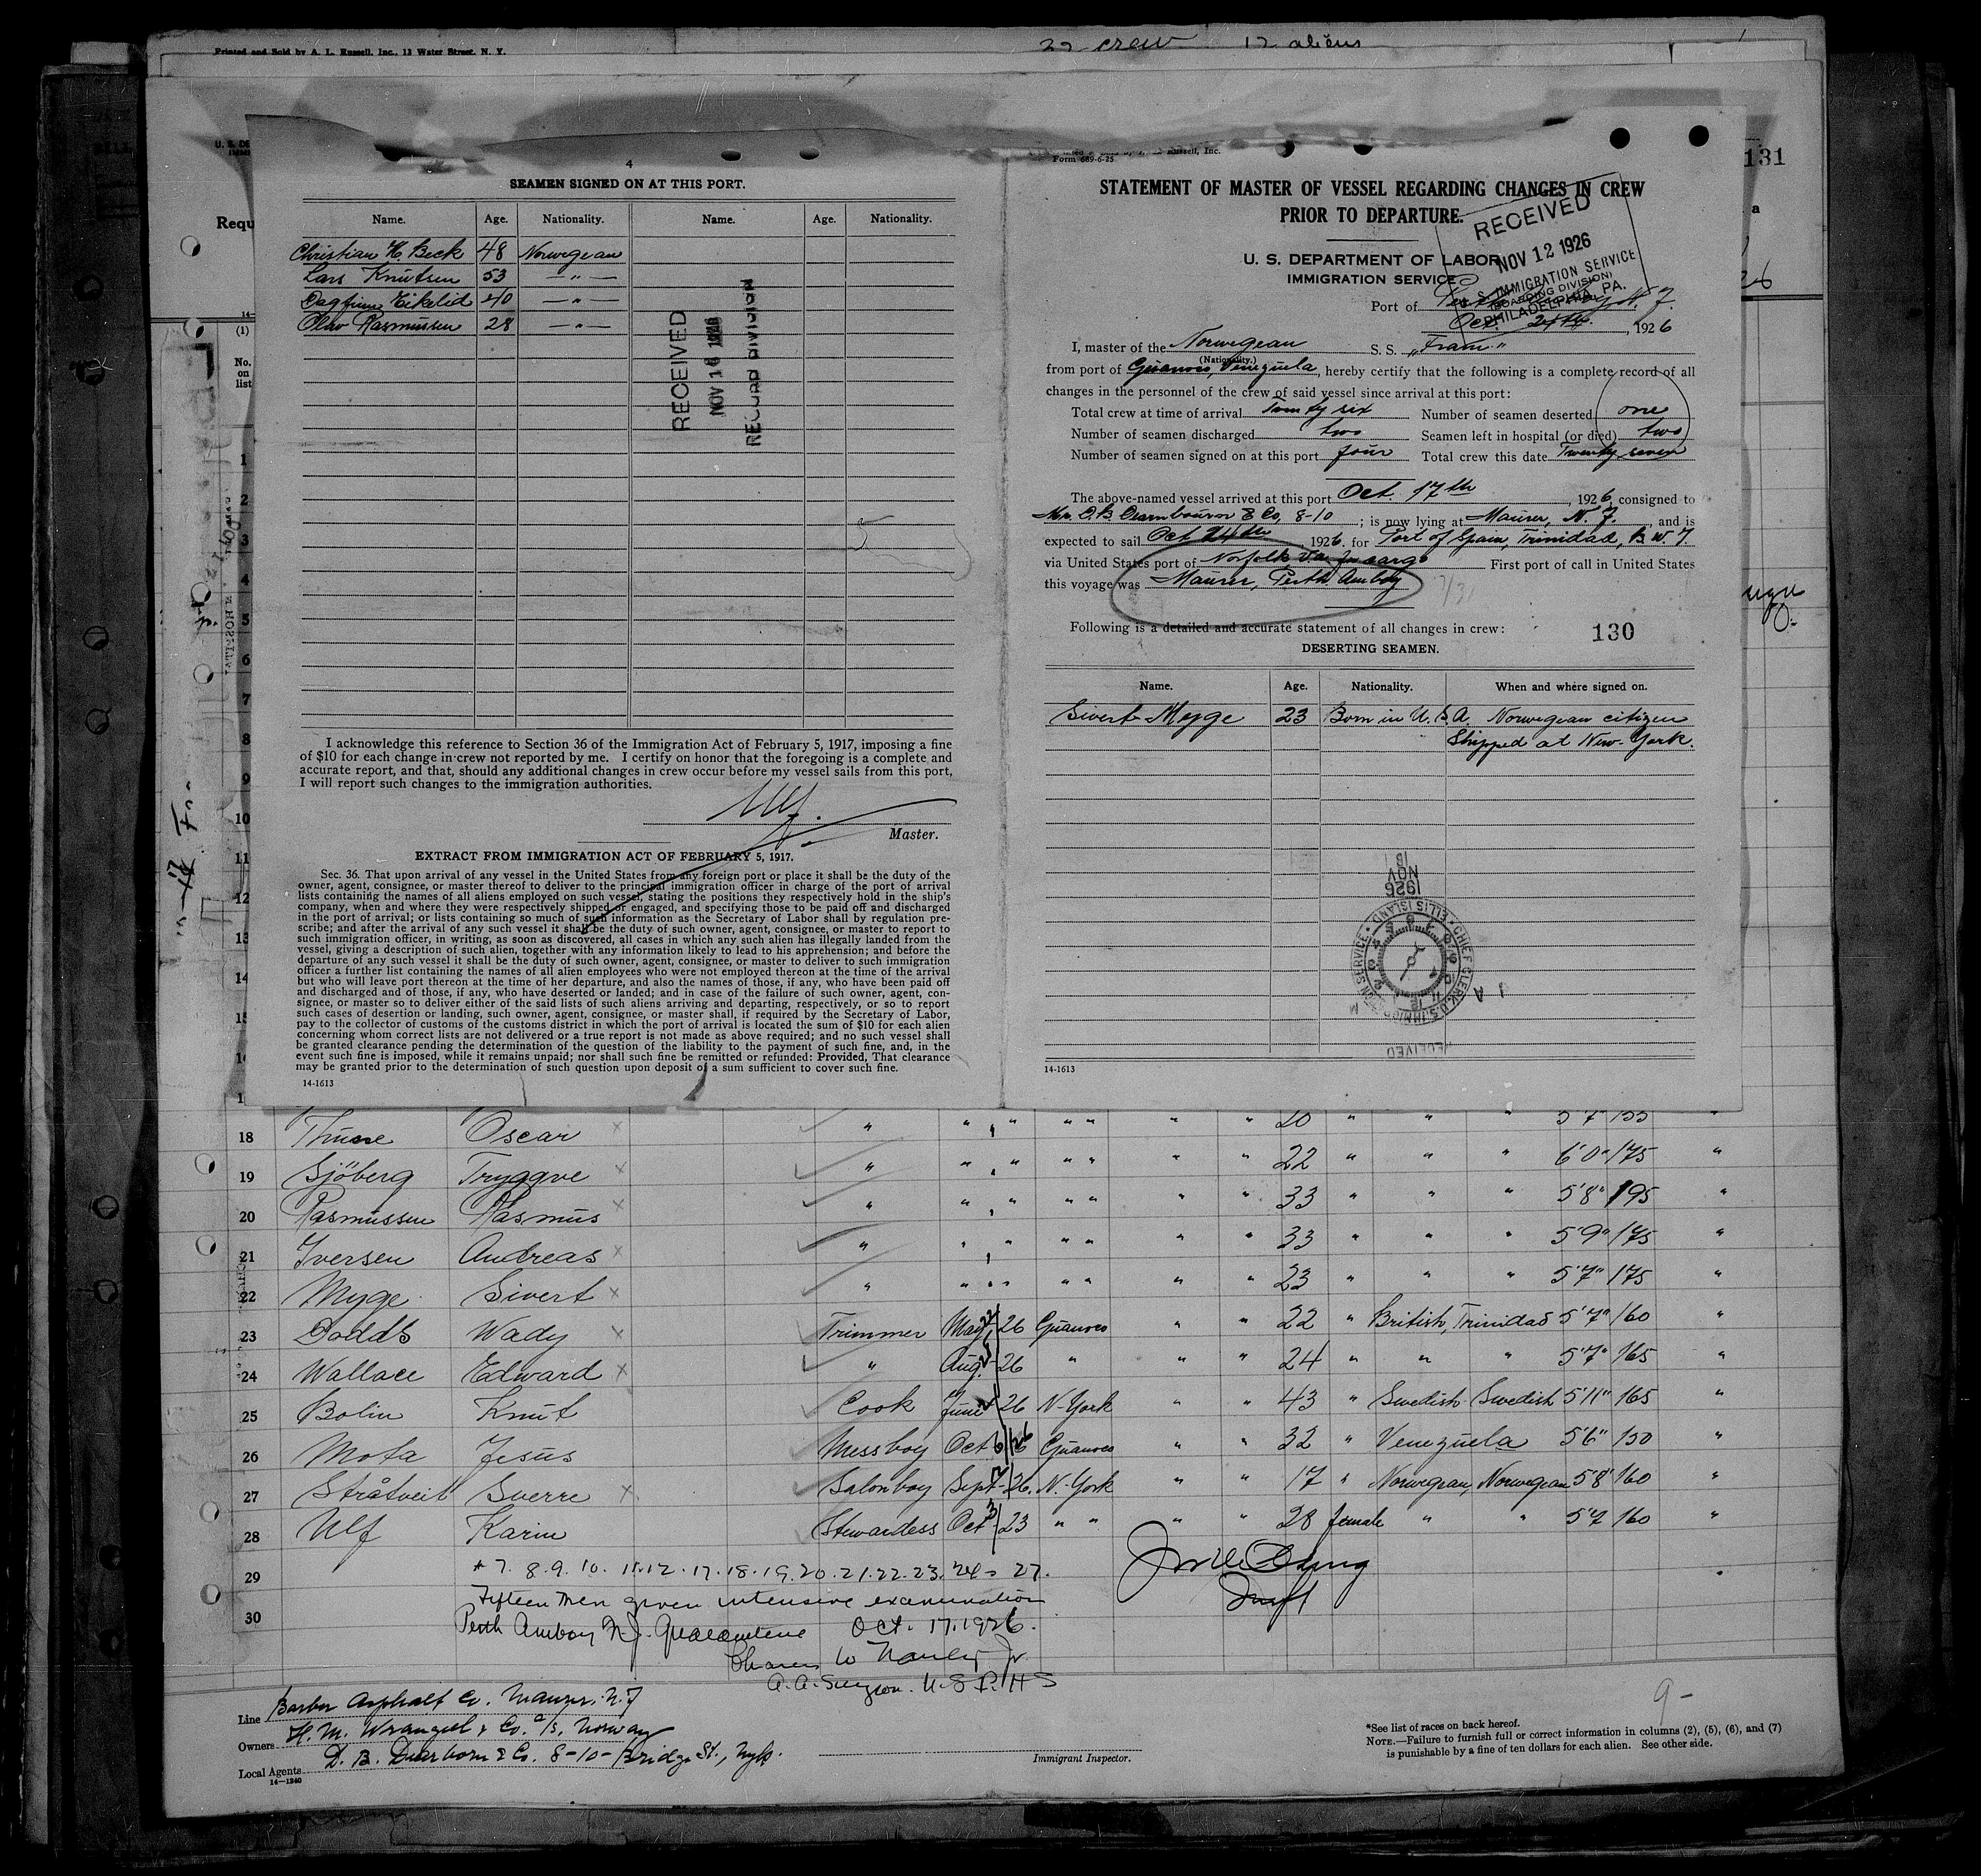 Printed and Sold by A. L. Russell, Inc., 13 Water Street, N. Y.
22 crew 12 aliens
131
4
SEAMEN SIGNED ON AT THIS PORT.
Name. Age. Nationality. Name. Age. Nationality.
Christian H. Beck 48 Norwegean
Lars Knutsen 53 — " —
Dagfinn Eikelid 40 — " —
Olav Rasmussen 28 — " —
RECEIVED
NOV 16 1926
RECORD DIVISION
I acknowledge this reference to Section 36 of the Immigration Act of February 5, 1917, imposing a fine
of $10 for each change in crew not reported by me. I certify on honor that the foregoing is a complete and
accurate report, and that, should any additional changes in crew occur before my vessel sails from this port,
I will report such changes to the immigration authorities.
Master.
EXTRACT FROM IMMIGRATION ACT OF FEBRUARY 5, 1917.
Sec. 36. That upon arrival of any vessel in the United States from any foreign port or place it shall be the duty of the
owner, agent, consignee, or master thereof to deliver to the principal immigration officer in charge of the port of arrival
lists containing the names of all aliens employed on such vessel, stating the positions they respectively hold in the ship's
company, when and where they were respectively shipped or engaged, and specifying those to be paid off and discharged
in the port of arrival; or lists containing so much of such information as the Secretary of Labor shall by regulation pre-
scribe; and after the arrival of any such vessel it shall be the duty of such owner, agent, consignee, or master to report to
such immigration officer, in writing, as soon as discovered, all cases in which any such alien has illegally landed from the
vessel, giving a description of such alien, together with any information likely to lead to his apprehension; and before the
departure of any such vessel it shall be the duty of such owner, agent, consignee, or master to deliver to such immigration
officer a further list containing the names of all alien employees who were not employed thereon at the time of the arrival
but who will leave port thereon at the time of her departure, and also the names of those, if any, who have been paid off
and discharged and of those, if any, who have deserted or landed; and in case of the failure of such owner, agent, con-
signee, or master so to deliver either of the said lists of such aliens arriving and departing, respectively, or so to report
such cases of desertion or landing, such owner, agent, consignee, or master shall, if required by the Secretary of Labor,
pay to the collector of customs of the customs district in which the port of arrival is located the sum of $10 for each alien
concerning whom correct lists are not delivered or a true report is not made as above required; and no such vessel shall
be granted clearance pending the determination of the question of the liability to the payment of such fine, and, in the
event such fine is imposed, while it remains unpaid; nor shall such fine be remitted or refunded: Provided, That clearance
may be granted prior to the determination of such question upon deposit of a sum sufficient to cover such fine.
14-1613
Form 689-6-25
STATEMENT OF MASTER OF VESSEL REGARDING CHANGES IN CREW
PRIOR TO DEPARTURE.
U. S. DEPARTMENT OF LABOR
IMMIGRATION SERVICE
RECEIVED
NOV 12 1926
U. S. IMMIGRATION SERVICE
(BOARDING DIVISION)
PHILADELPHIA, PA.
Port of Perth Amboy N. J.
Oct. 24th. 1926
I, master of the Norwegean S. S. "Fram"
(Nationality.)
from port of Guanoco, Venezuela, hereby certify that the following is a complete record of all
changes in the personnel of the crew of said vessel since arrival at this port:
Total crew at time of arrival Twenty six Number of seamen deserted one
Number of seamen discharged two Seamen left in hospital (or died) two
Number of seamen signed on at this port four Total crew this date Twenty seven
The above-named vessel arrived at this port Oct. 17th, 1926, consigned to
8-10; is now lying at Maurer, N. J. and is
expected to sail Oct 24th 1926. for Port of Spain, Trinidad, B W I.
via United States port of Norfolk, Va. for cargo First port of call in United States
this voyage was Maurer, Perth Amboy
Following is a detailed and accurate statement of all changes in crew:
130
DESERTING SEAMEN.
Name. Age. Nationality. When and where signed on.
Sivert Myge 23 Born in U. S. A. Norwegean citizen
Shipped at New-York.
14-1613
18 Thune Oscar " " " " " " " 20 " " 5'7" 155 "
19 Sjöberg Tryggve " " " " " " " 22 " " " 6'0" 175 "
20 Rasmussen Rasmus " " " " " " " 33 " " " 5'8" 195 "
21 Iversen Andreas " " " " " " " 33 " " " 5'9" 175 "
22 Myge Sivert " " " " " " " 23 " " " 5'7" 175 "
23 Dodds Wady Trimmer May 26 Guanoco " " 22 " British, Trinidad 5'7" 160 "
24 Wallace Edward " Aug. 26 " " " 24 " " " 5'7" 165 "
25 Bolin Knut Cook June 26 N-York " " 43 " Swedish Swedish 5'11" 165 "
26 Mota Jesus Messboy Oct 6/26 Guanoco " " 32 " Venezuela 5'6" 150 "
27 Stråtveit Sverre Salonboy Sept 26. N.-York " " 17 " Norwegian, Norwegean 5'8" 160 "
28 Ulf Karin Stewardess Oct 3/23 " " " " 28 female " " 5'7 160 "
29 * 7. 8. 9. 10. 11. 12. 17. 18. 19. 20. 21. 22. 23. 24 - 27.
Fifteen men given intensive examination
30 Perth Amboy N.J. Quarantine Oct. 17. 1926.
A. A. Surgeon. U. S. P. H S
Line Barber Asphalt Co. Maurer. N. J
Owners H. M. Wrangell & Co. a/s, Norway
Local Agents D. B. Dearborn & Co. 8-10-Bridge St., NYk.
14-1240
Immigrant Inspector.
9-
*See list of races on back hereof.
NOTE.—Failure to furnish full or correct information in columns (2), (5), (6), and (7)
is punishable by a fine of ten dollars for each alien. See other side.